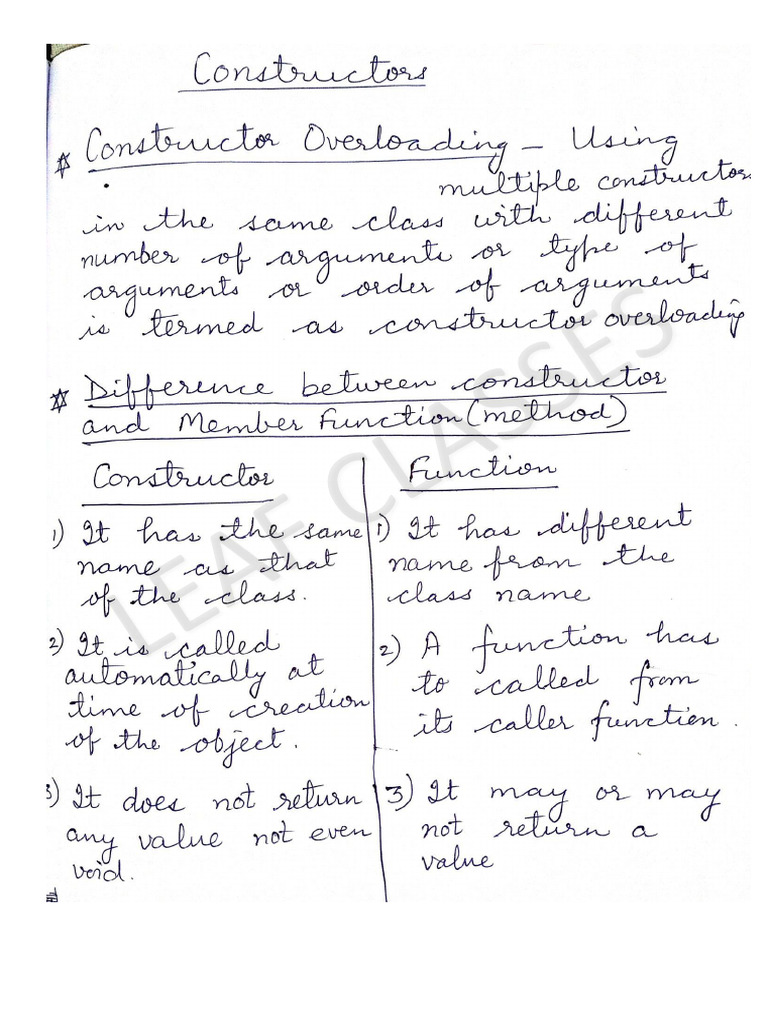 Constructors
☆ Constructor Overloading - Using
multiple constructors
in the same class with different
number of arguments or type of
arguments or order of arguments
is termed as constructor overloading
☆ Difference between constructor
and Member Function (method)
Constructor
1) It has the same
name as that
of the class.
2) It is called
automatically at
time of creation
of the object.
3) It does not return
any value not even
void.
Function
1) It has different
name from the
class name
2) A function has
to called from
its caller function.
3) It may or may
not return a
value
LEAF CLASSES